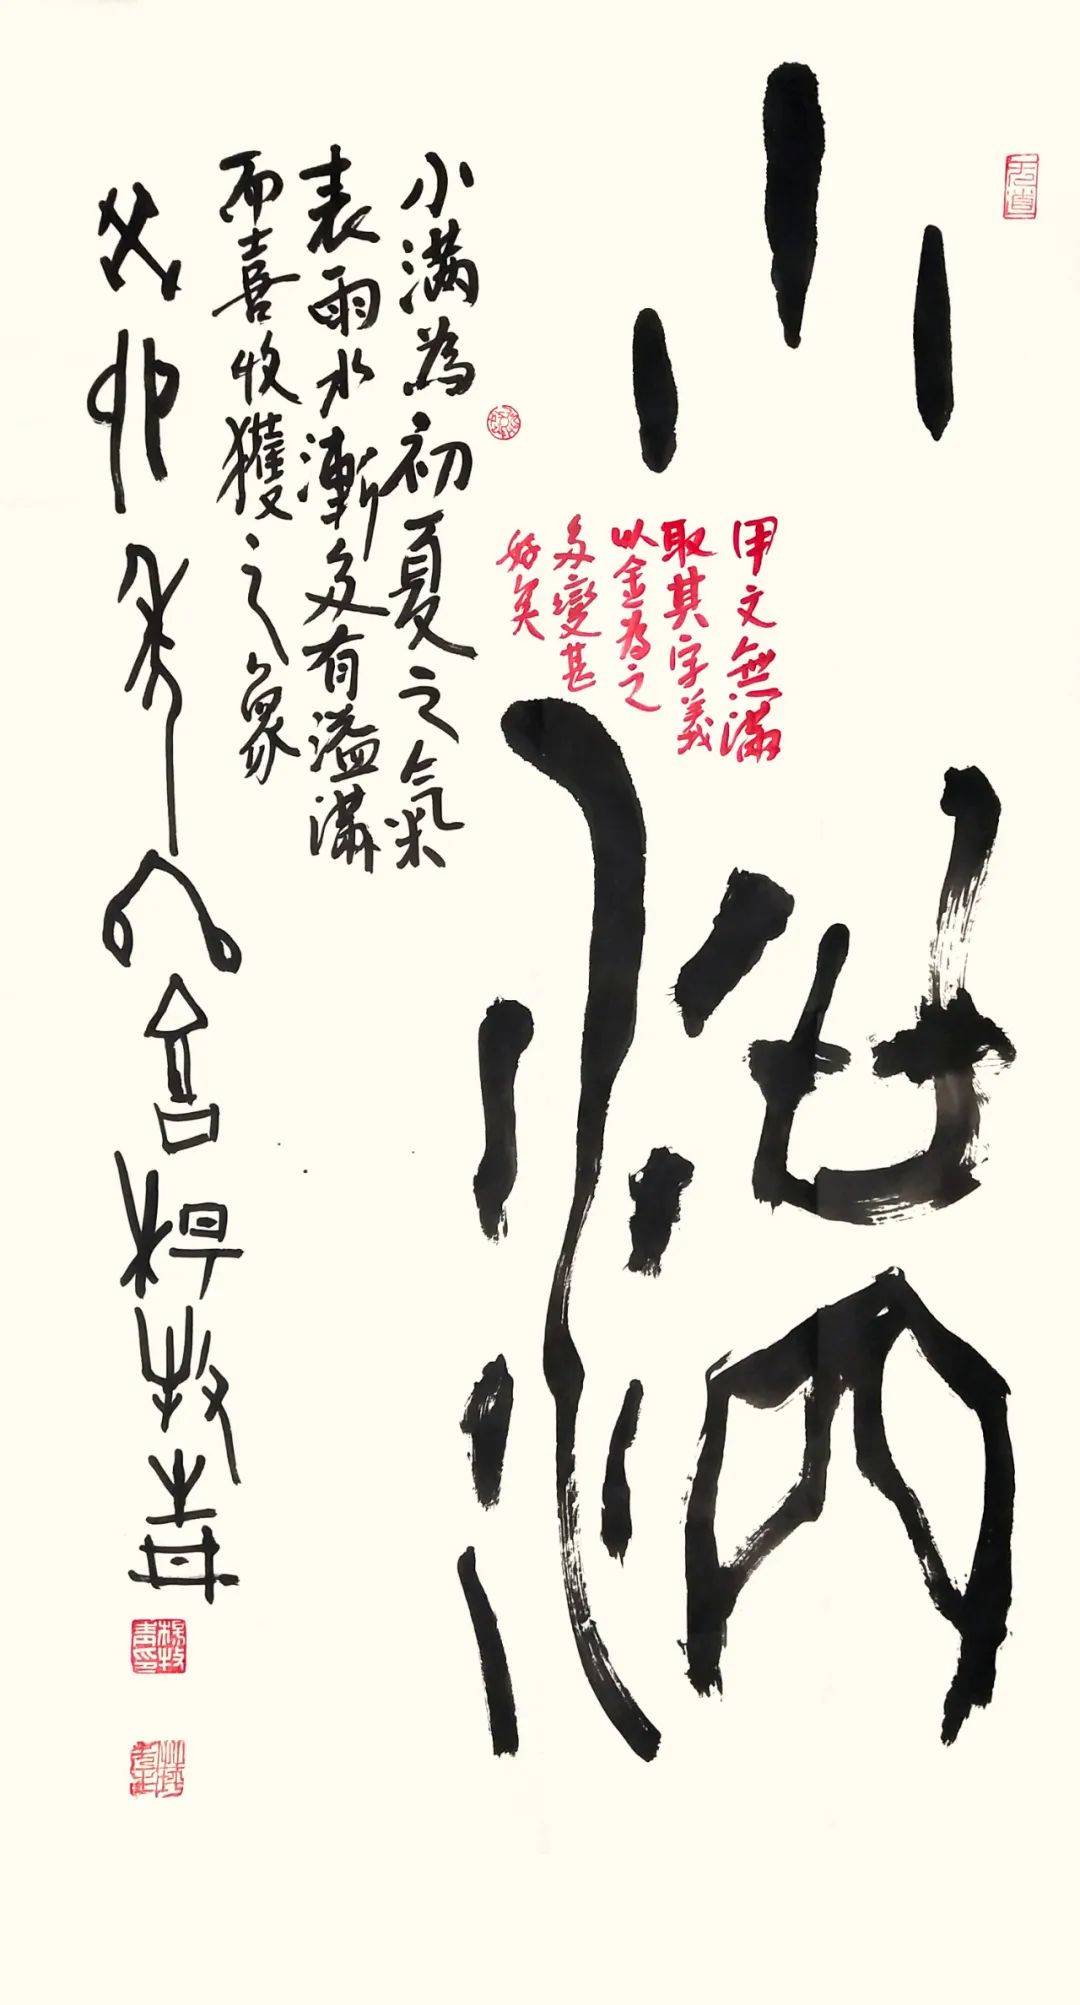 小滿
甲文無满
取其字義
以金為之
多變甚
好矣
小满為初夏之氣
表雨水漸多有溢满
而喜收獲之象
癸卯年舍楊牧青